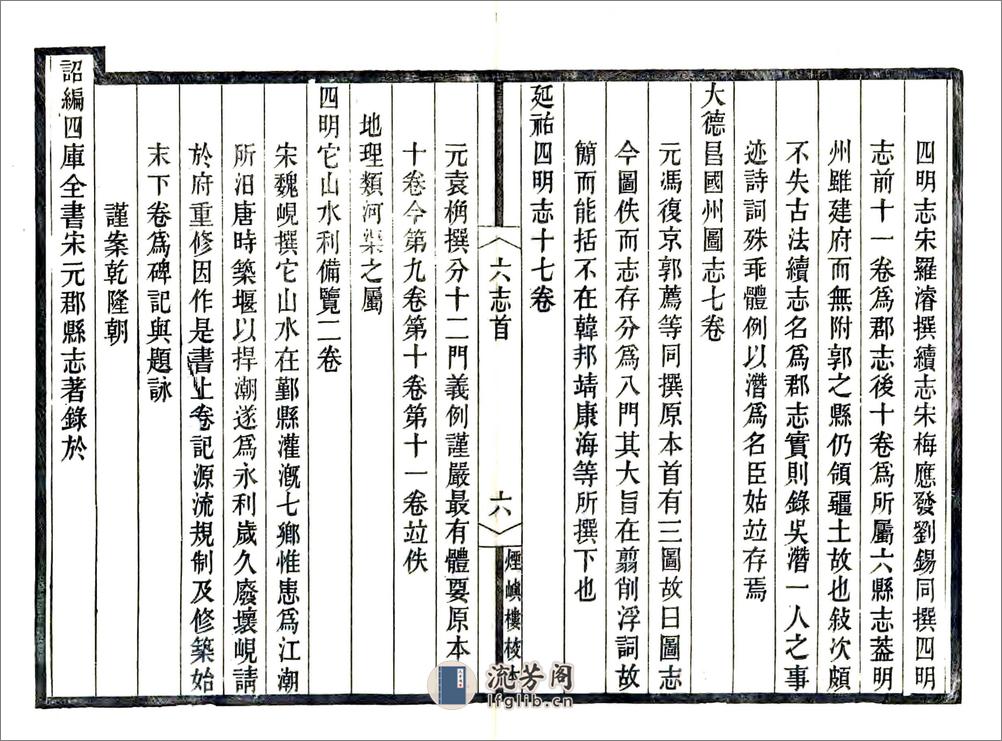 四明志宋羅濬撰續志宋梅應發劉錫同撰四明
志前十一卷爲郡志後十卷爲所屬六縣志蓋明
州雖建府而無附郭之縣仍領疆土故也敍次頗
不失古法續志名爲郡志實則錄吳潛一人之事
迹詩詞殊乖體例以潛爲名臣姑竝存焉
大德昌國州圖志七卷
元馮復京郭薦等同撰原本首有三圖故曰圖志
今圖佚而志存分爲八門其大旨在翦削浮詞故
簡而能括不在韓邦靖康海等所撰下也
延祐四明志十七卷
六志首
六
煙嶼樓校
元袁桷撰分十二門義例謹嚴最有體要原本
十卷今第九卷第十卷第十一卷竝佚
地理類河渠之屬
四明它山水利備覽二卷
宋魏峴撰它山水在鄞縣灌漑七鄉惟患爲江潮
所汨唐時築堰以捍潮遂爲永利歲久廢壞峴請
於府重修因作是書上卷記源流規制及修築始
末下卷爲碑記與題詠
謹案乾隆朝
詔編四庫全書宋元郡縣志著錄於
流芳阁
lfglib.cn